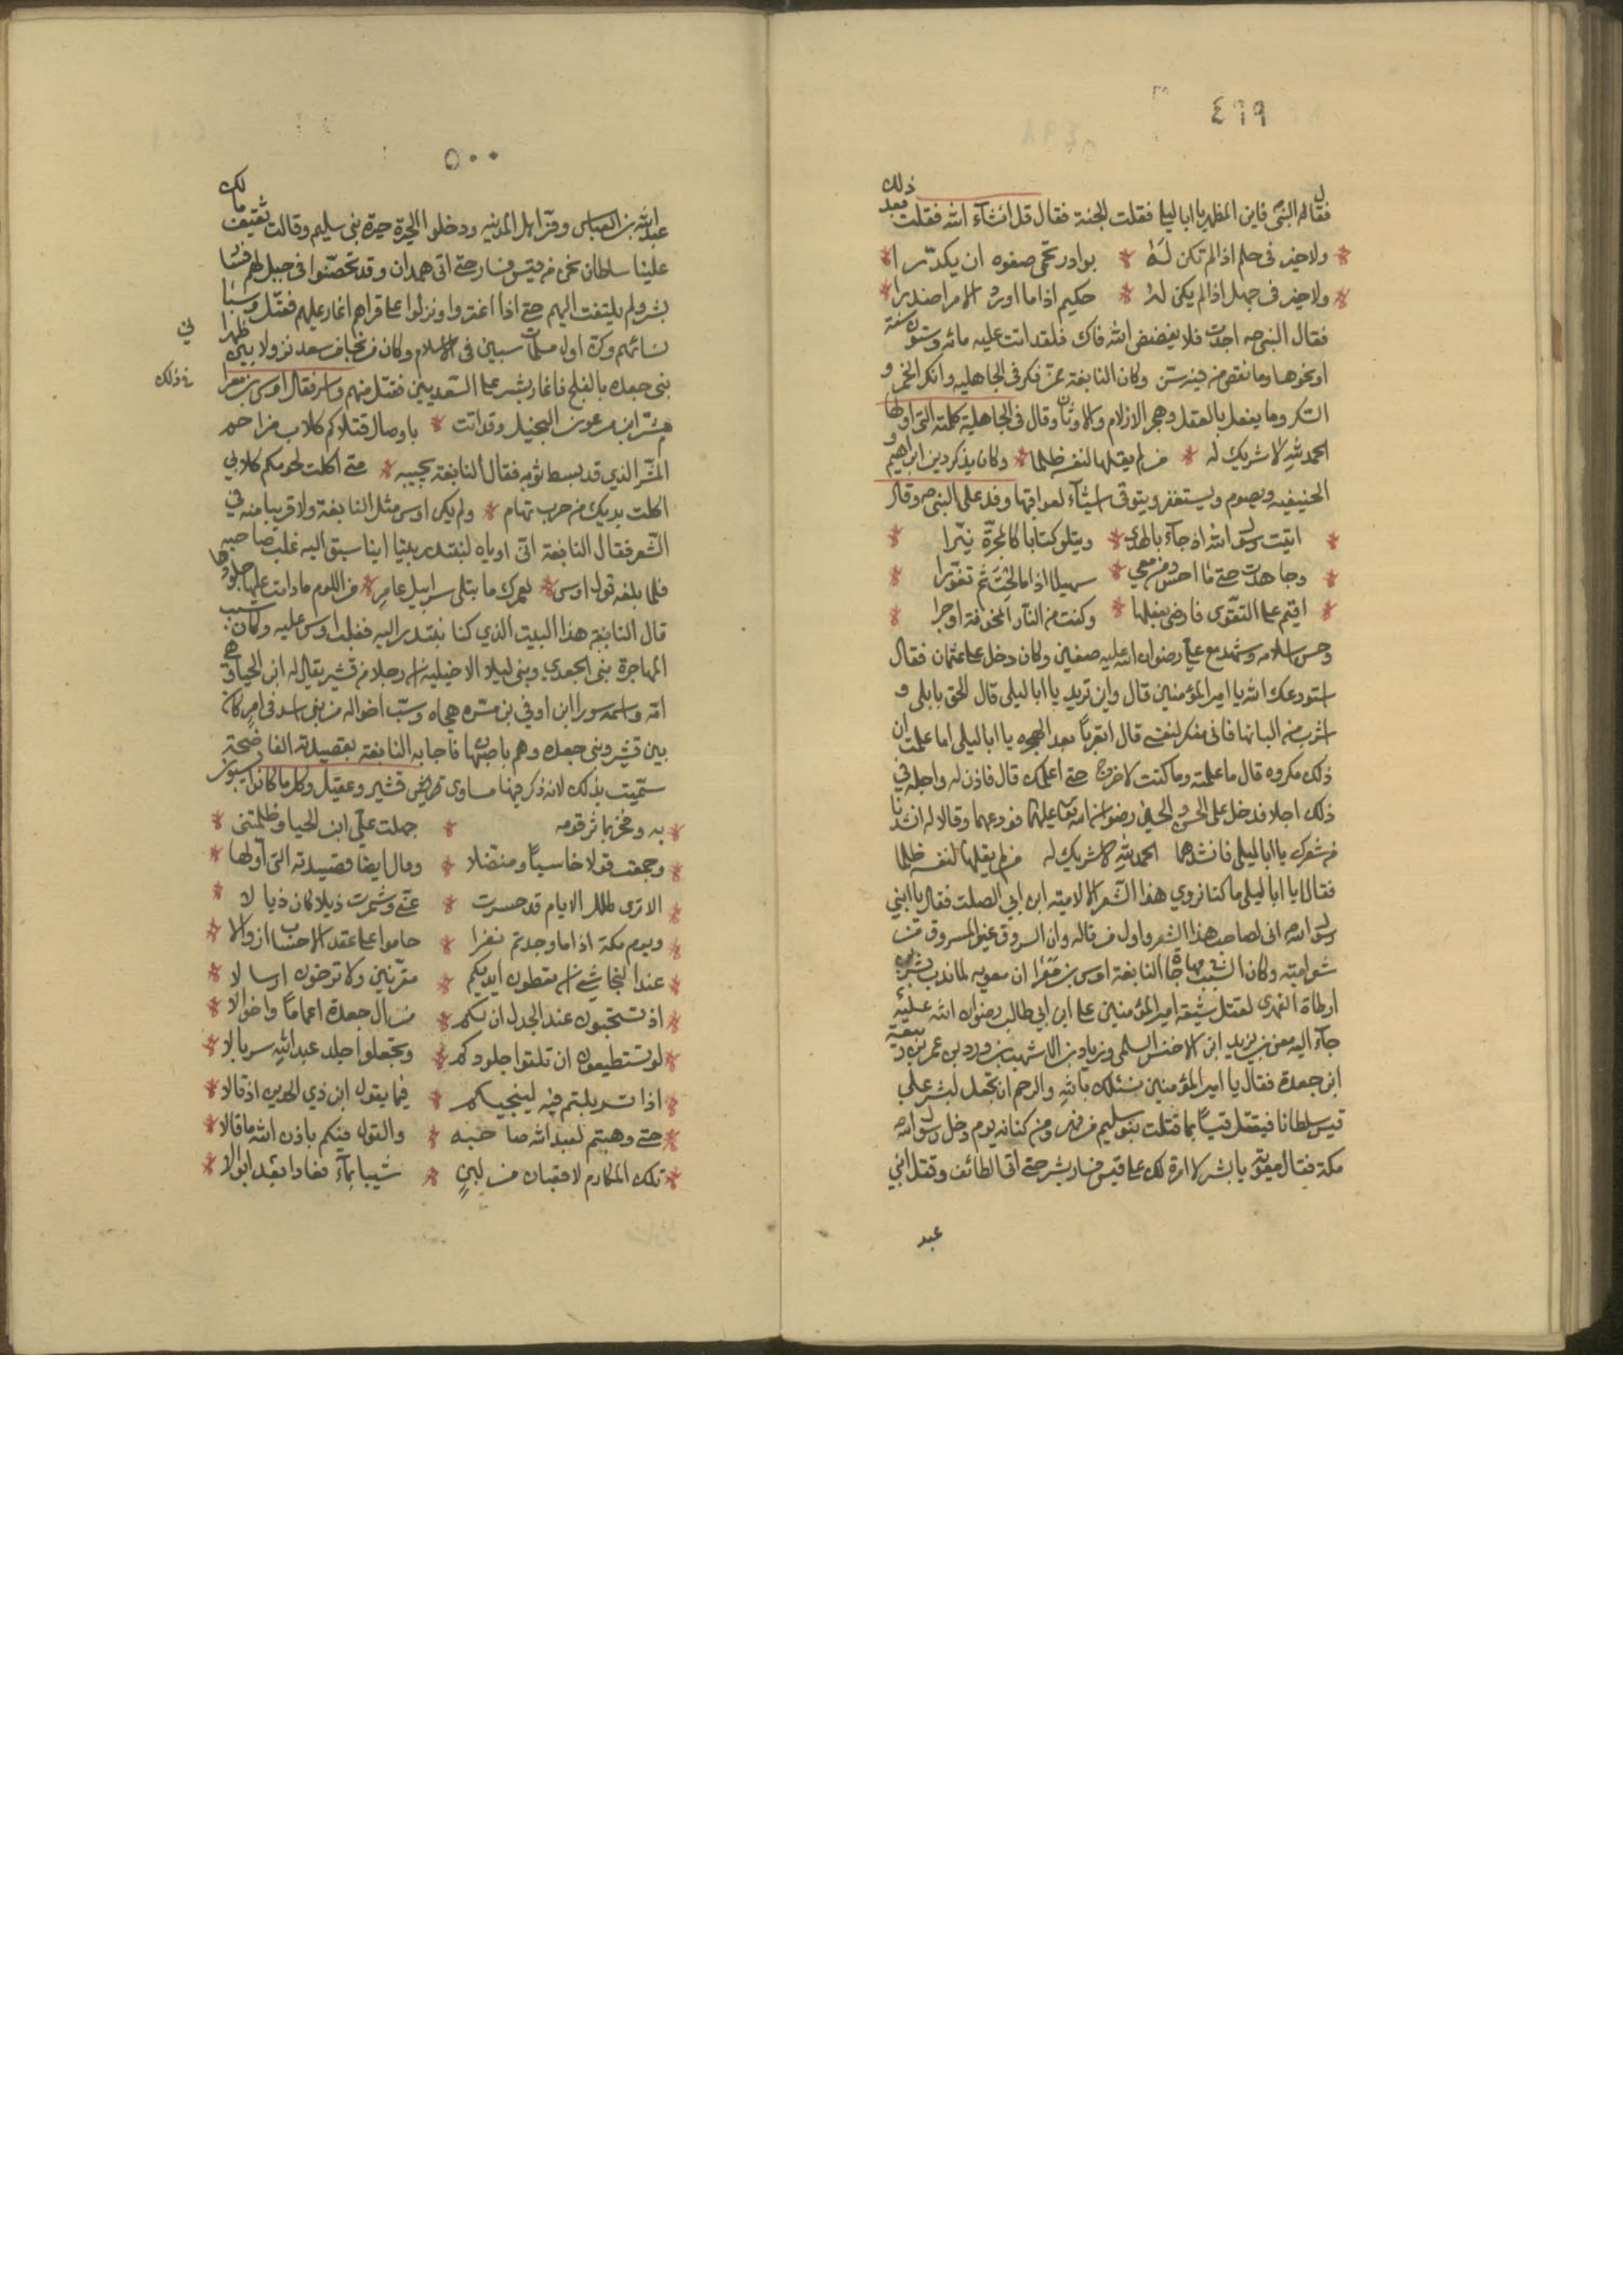 ٤٩٩
فقال له النبي فاين المظهر يا ابا ليلى فقلت الجنة فقال قل انشآء الله فقلت بعد ذلك
ولا خير في حلم اذا لم تكن له * بوادر تحمى صفوه ان يكدّرا
ولا خير في جهل اذا لم يكن له * حكيم اذا ما اورد الامر اصدرا
فقال النبي صه اجدت فلا يفضض الله فاك فلقد اتت عليه مائه وستون سنة
او نحوها وما نقص من فيه سنّ وكان النابغة ممّن فكر في الجاهليه وانكر الخمر و
السكر وما يفعل بالعقل وهجر الازلام والاوثان وقال في الجاهلية كلمته التي اولها
الحمد لله لا شريك له * من لم يقلها لنفسه ظلما * وكان يذكر دين ابراهيم و
الحنيفيه ويصوم ويستغفر ويتوقى اشيآء لعواقبها وفد على النبي صه وقال
اتيت رسول الله اذ جآء بالهدى * ويتلو كتابا كالمجرّة نيّرا
وجاهدت حتى ما احس ومن معي * سهيلا اذا ما لاح ثم تغوّرا
اقيم على التقوى فارضى بفعلها * وكنت من النار المخوفة اوجرا
وحسن اسلامه وشهد مع علي رضوان الله عليه صفين وكان دخل على عثمان فقال
استودعك الله يا امير المؤمنين قال واين تريد يا ابا ليلى قال الحق بابلى و
اشرب من البانها فانى منكر لنفسى قال اتعربا بعد الهجره يا ابا ليلى اما علمت ان
ذلك مكروه قال ما علمته وما كنت لاخرج حتى اعلمك قال فاذن له واجله في
ذلك اجلا فدخل على الحسن والحسين رضوان الله تعالى عليهما فودعهما وقالا له انشدنا
من شعرك يا ابا ليلى فانشدهما الحمد لله لا شريك له من لم يقلها لنفسه ظلما
فقالا يا ابا ليلى ما كنا نروي هذا الشعر الا لاميته ابن ابي الصلت فقال يا ابني
رسول الله انى لصاحب هذا الشعر واول من قاله وان السروق عين المسروق من
شعر اميته وكان السبب في مهاجاة النابغة اوس بن مغرا ان معويه لما ندب بشر بن
ارطاة الفهري لقتل شيعة امير المؤمنين علي ابن ابي طالب رضوان الله عليه
جآء اليه معن بن يزيد ابن الاخنس السلمى وزياد بن الاشهب بن ورد بن عمر بن ربيعة
ابن جعدة فقال يا امير المؤمنين نسئلك بالله والرحم ان تجعل لبشر على
قيس سلطانا فيقتل قيسًا بما قتلت بنو سليم من فهر ومن كنانه يوم دخل رسول الله
مكة فقال معويه يا بشر لا امرة لك على قيس فسار بشر حتى اتى الطائف وقتل ابني
عبد
٥٠٠
عبد الله بن العباس وفرّ اهل المدينه ودخلوا الحرة حرة بنى سليم وقالت ثقيف مالك
علينا سلطان نحن من قيس فسار حتى اتى همدان وقد تحصّنوا في جبل لهم فسار
بشر ولم يلتفت اليهم حتى اذا اغتروا ونزلوا على قراهم اغار عليهم فقتل وسبا
نسائهم وكن اول مسلمات سبين في الاسلام وكان من بني سعد نزولا بين ظهرا ني
بنى جعده بالفلج فاغار بشر على السعديين فقتل منهم واسر فقال اوس بن مغرا في ذلك
مشرّابن من عون النخيل وقد اتت * با وصال قتلاكم كلاب مزاحم
المشّر الذي قد بسط ثوبه فقال النابغة يجيبه * متى اكلت لحومكم كلابي
اكلت يديك من حرب تهام * ولم يكن اوس مثل النابغة ولا قريبا منه في
الشعر فقال النابغة انى واياه لنبتدر بيتا اينا سبق اليه غلب صاحبه
فلما بلغه قول اوس * لعمرك ما تبلى سرابيل عامر * من اللوم ما دامت عليها جلودها
قال النابغه هذا البيت الذي كنا نبتدر اليه فغلب اوس عليه وكان سبب
المهاجرة بنى الجعدي وبنى ليلا الاخيليه ان رجلا من قشير يقال له ابن الحيا وهي
امّه واسمه سورا ابن اوفي بن سبره هجاه وسبّ اخواله من بني اسد في امر كان
بين قشير وبنى جعده وهم باصبهان فاجابه النابغة بقصيدته الفاضحة
سمّيت بذلك لانه ذكر فيها مساوى قشير وعقيل وكل ما كانوا يسبون
به وفخر بماثر قومه * جهلت علّى ابن الحيا وظلمتنى
وجمعت قولا خاسيًا ومنضلا * وقال ايضا قصيدته التي اولها
الا ترى ملل الايام قد حسرت * عنّى وشمرت ذيلا كان ذيالا
ويوم مكة اذا ما وجدتم نفرا * حاموا على عقد الاحساب ازوالا
عند النجاشي اذ تعطون ايديكم * مقرّنين ولا ترجون ارسالا
اذ تستحبون عند الجدل ان لكم * من ال جعدة اعمامًا واخوالا
لو تستطيعون ان تلقوا جلودكم * وتجعلوا جلد عبد الله سربالا
اذا تسربلتم فيه لينجيكم * فيما يقول ابن ذي الجدين اذ قالا
حتى وهبتم لعبد الله صاحبه * والقول فيكم باذن الله ما قالا
تلك المكارم لا قعبان من لبن * شيبا بمآء فعادا بعد ابوالا